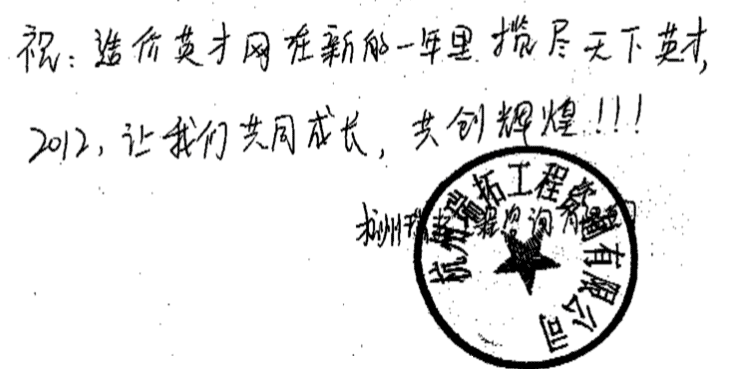 祝：造价英才网在新的一年里揽尽天下英才，
2012，让我们共同成长，共创辉煌！！！
杭州瑞拓工程咨询有限公司
杭州瑞拓工程咨询有限公司